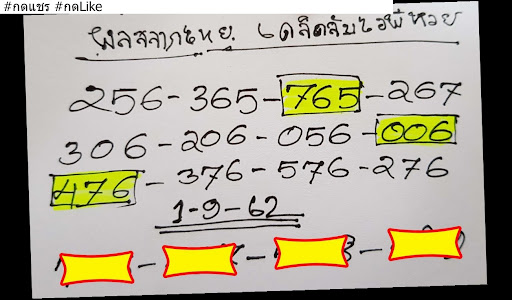 #กดแชร์ #กดLike
ผลสลากไทย. เคล็ดลับไอพีหวย
256-365-765-267
306-206-056-006
476-376-576-276
1-9-62